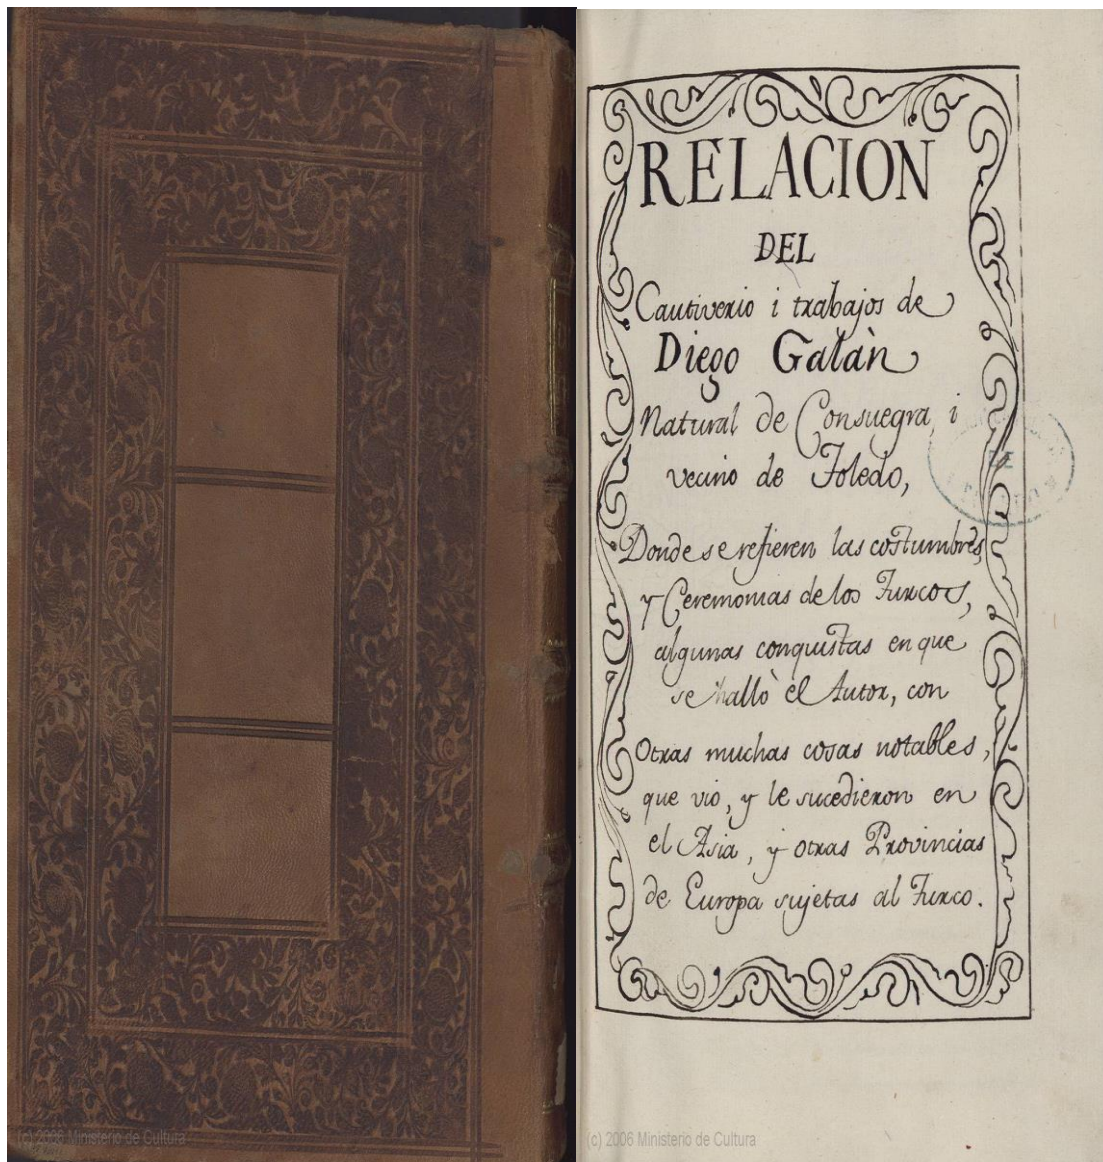 RELACION
DEL
Cautiverio i trabajos de
Diego Galàn
Natural de Consuegra, i
vecino de Toledo,
Donde se refieren las costumbres,
y Ceremonias de los Turcos,
algunas conquistas en que
se hallò el Autor, con
Otras muchas cosas notables,
que vio, y le sucedieron en
el Asia, y otras Provincias
de Europa sujetas al Turco.
(c) 2006 Ministerio de Cultura
(c) 2006 Ministerio de Cultura